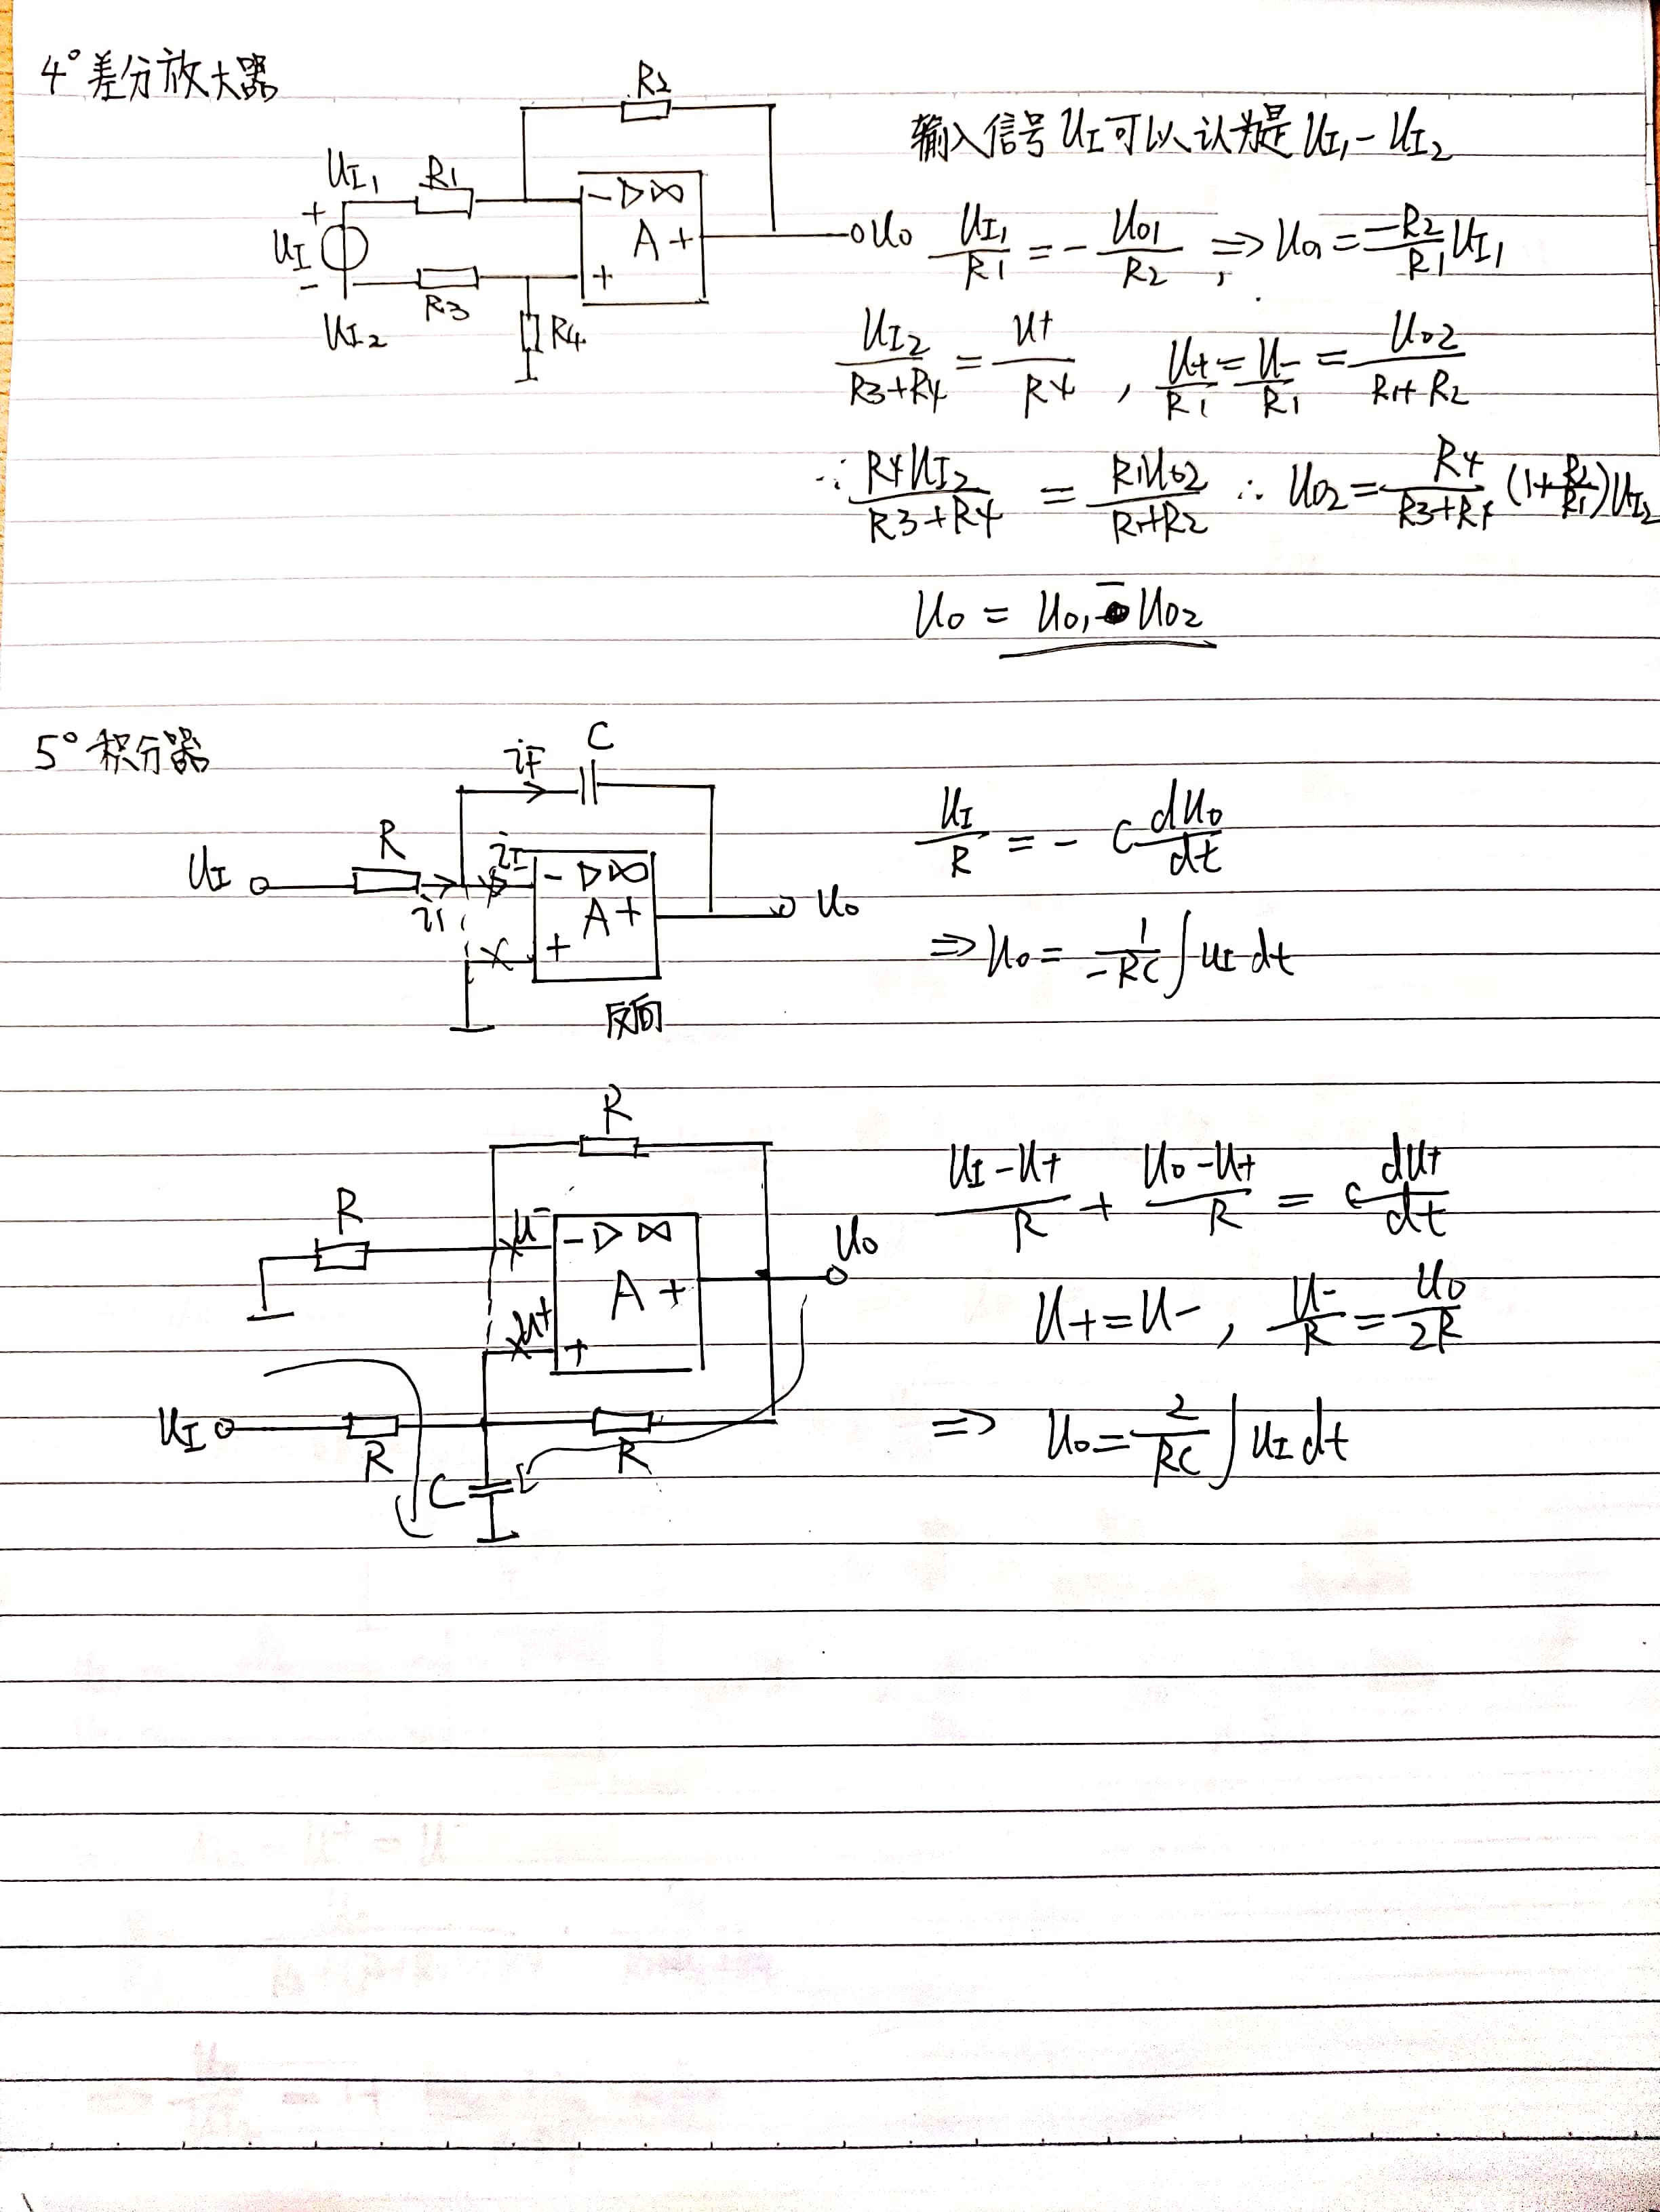 4° 差分放大器
R2
UI1 R1
-▷∞
A+
+
UI
+
-
R3
UI2
R4
Uo
输入信号 UI 可以认为是 UI1 - UI2
UI1/R1 = - Uo1/R2 , ⇒ Uo1 = -R2/R1 UI1
UI2/(R3+R4) = U+/R4 , U+/R1 = U-/R1 = Uo2/(R1+R2)
∴ R4UI2/(R3+R4) = R1Uo2/(R1+R2) ∴ Uo2 = R4/(R3+R4) (1+R2/R1)UI2
Uo = Uo1 - Uo2
5° 积分器
iF C
UI R i1 iI
-▷∞
A+
+
Uo
反向
UI/R = - C dUo/dt
⇒ Uo = 1/-RC ∫ uI dt
R
R U-
-▷∞
A+
U+ +
Uo
UI R R
C
(UI-U+)/R + (Uo-U+)/R = C dU+/dt
U+ = U- , U-/R = Uo/2R
⇒ Uo = 2/RC ∫ uI dt